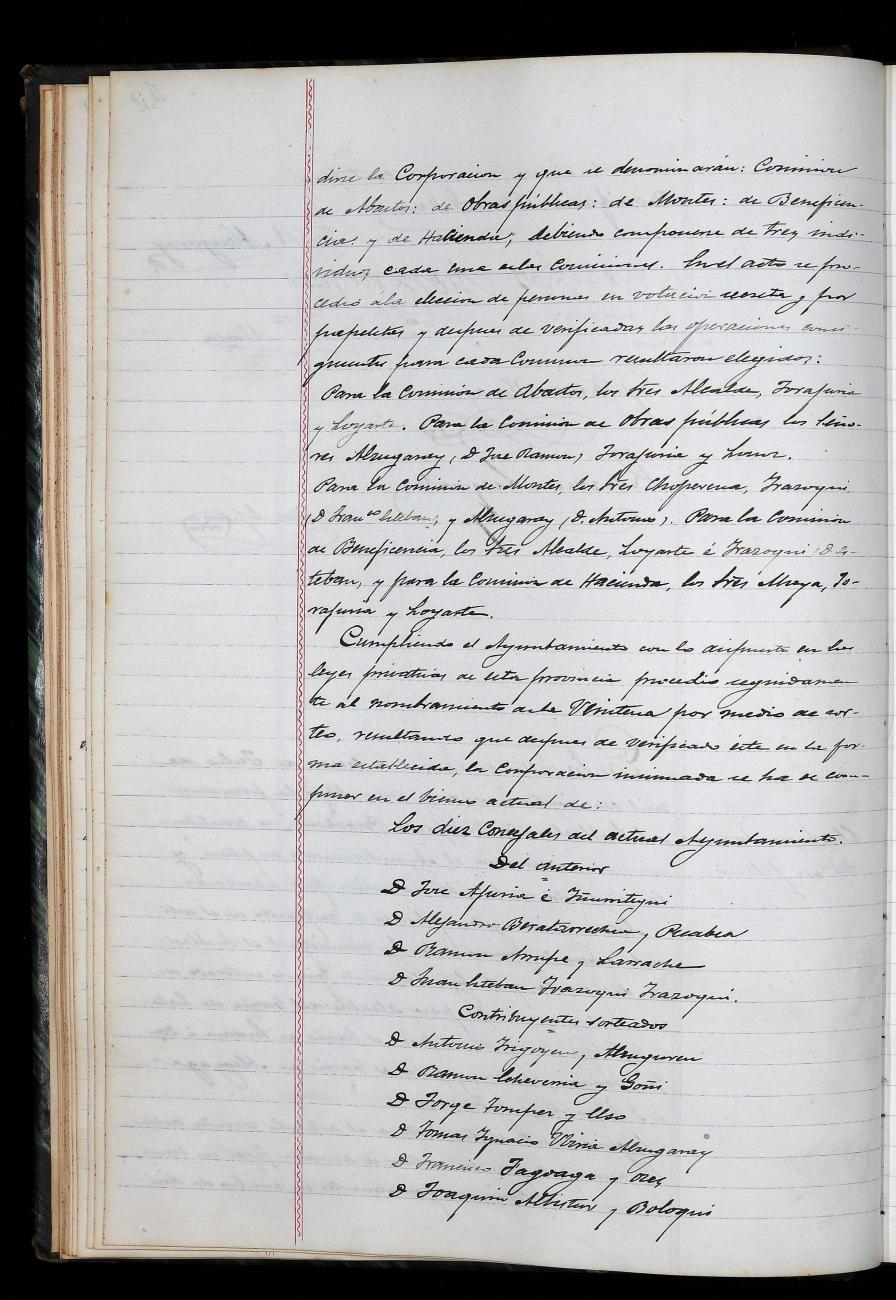 dirse la Corporacion y que se denominarán: Comision
de Abastos: de Obras públicas: de Montes: de Beneficen-
cia: y de Hacienda; debiendo componerse de tres indi-
viduos cada una de las Comisiones. En el acto se pro-
cedió á la eleccion de personas en votacion secreta y por
papeletas y despues de verificadas las operaciones consi-
guientes para cada Comision resultaron elegidos:
Para la Comision de Abastos, los Sres Alcalde,
y Loyarte. Para la Comision de Obras públicas los Seño-
res Alzugaray, (D José Ramon) y
Para la Comision de Montes, los Sres Choperena, Irazoqui
(D Franco Esteban) y Alzugaray (D. Antonio). Para la Comision
de Beneficencia, los Sres Alcalde, Loyarte é Irazoqui (D Es-
teban) y para la Comision de Hacienda, los Sres
y Loyarte.
Cumpliendo el Ayuntamiento con lo dispuesto en las
leyes privativas de esta provincia procedió seguidamen
te al nombramiento de la Veintena por medio de sor-
teo, resultando que despues de verificado este en la for-
ma establecida, la Corporacion insinuada se ha de com-
poner en el bienio actual de:
Los diez Concejales del actual Ayuntamiento.
Del anterior
D José Apecia é
D Alejandro y
D Ramon Arrupe y Larrache
D Juan Esteban Irazoqui Irazoqui.
Contribuyentes sorteados
D Antonio Irigoyen y Alzuguren
D Ramon Echeverria y Goñi
D Jorge y
D Tomas Ignacio Alzugaray
D Francisco Jagoaga y
D Joaquin Albistur y